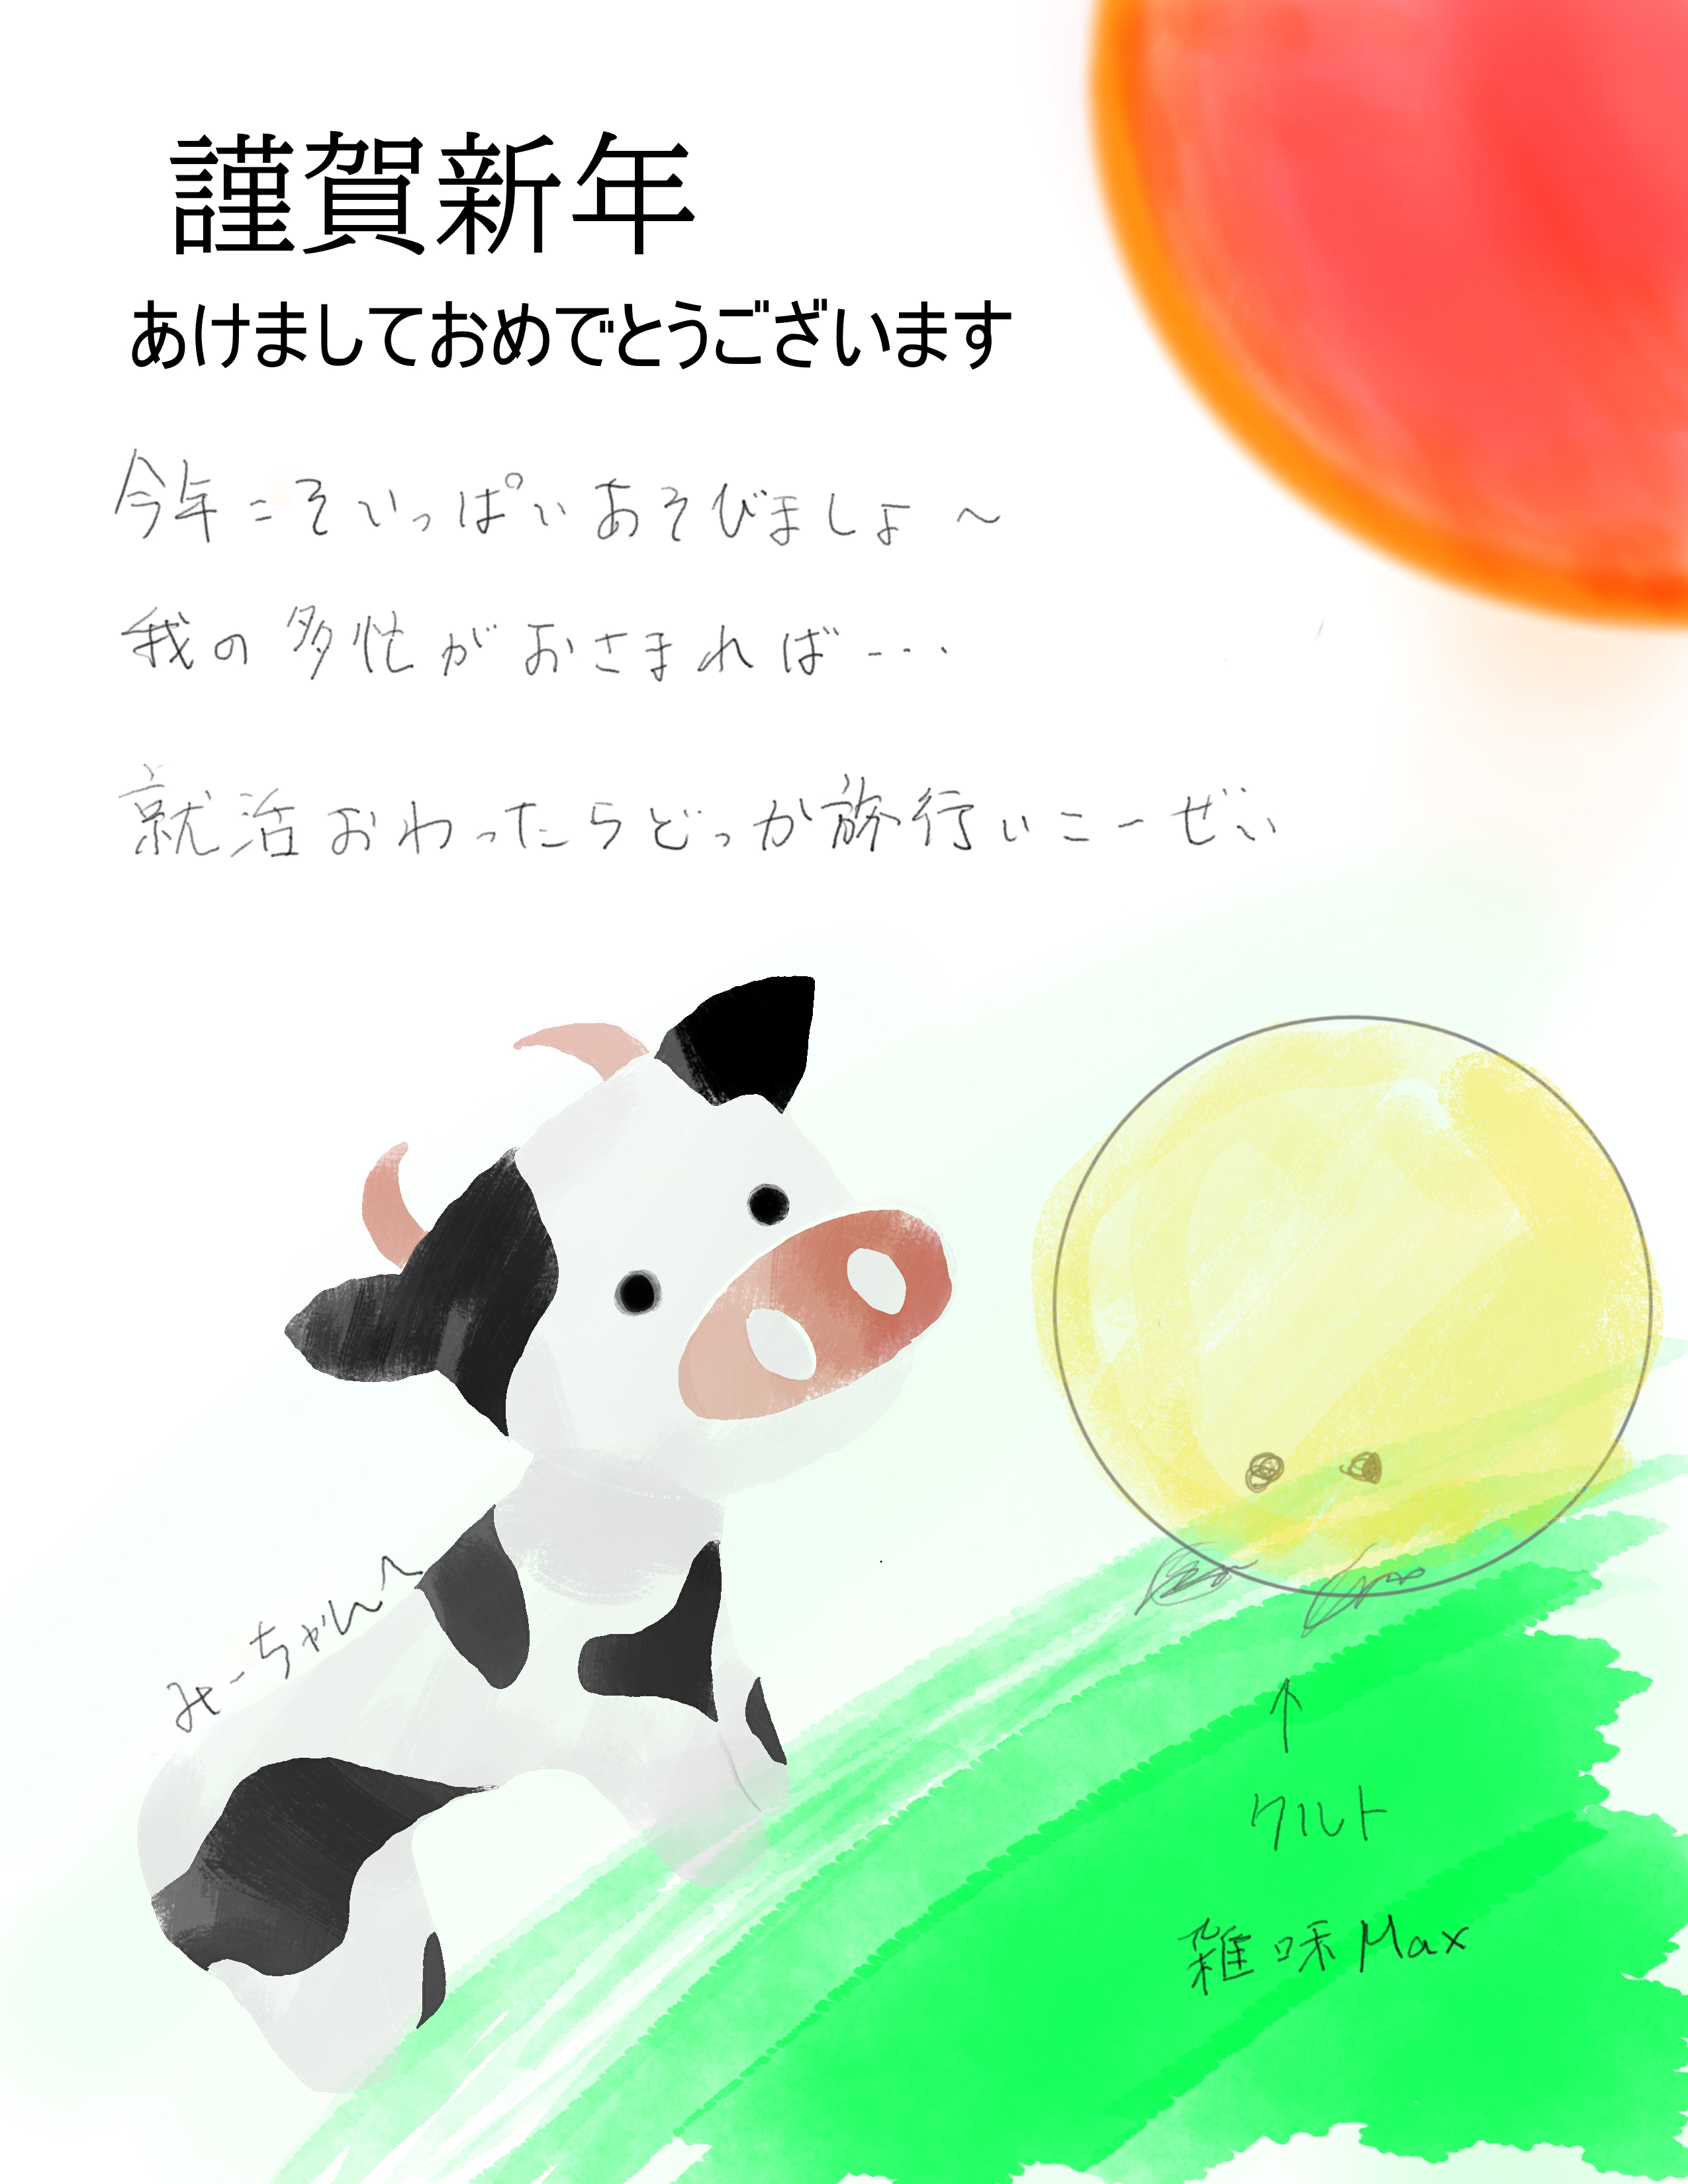 謹賀新年
あけましておめでとうございます
今年こそいっぱいあそびましょ〜
我の多忙がおさまれば…
就活おわったらどっか旅行いこーぜい
みーちゃんへ
↑
クルト
雑味Max